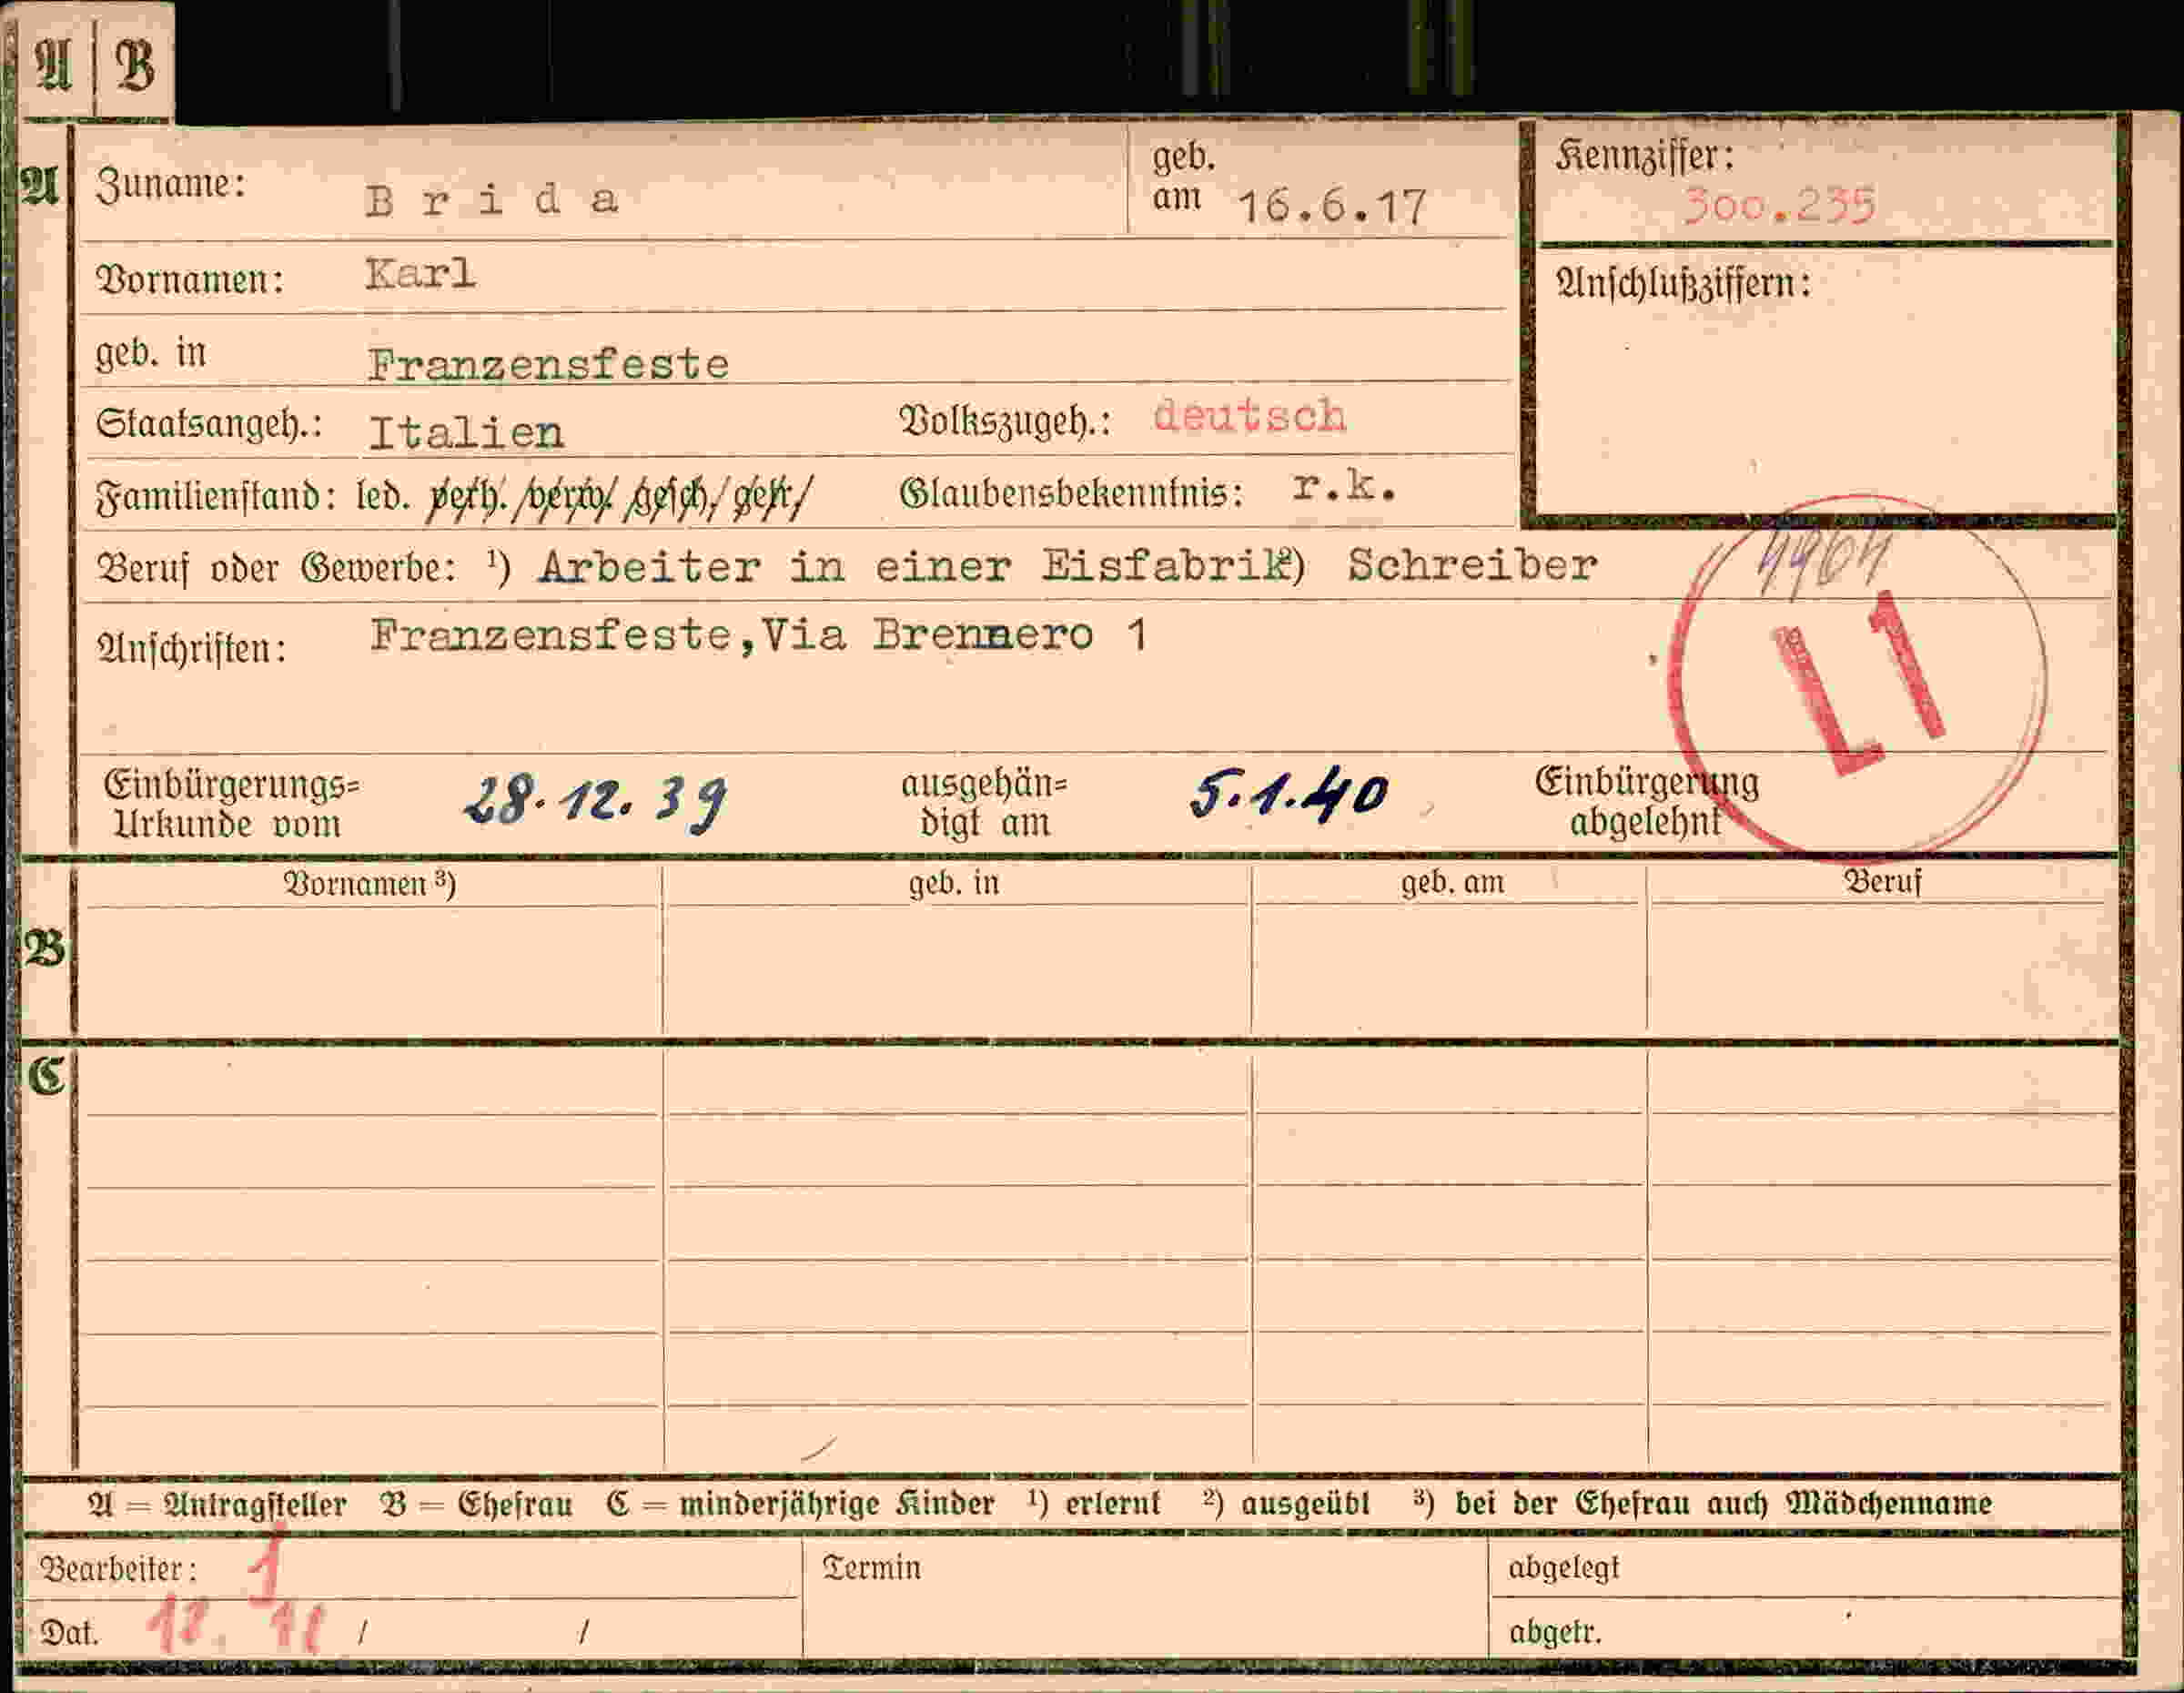 A B
A Zuname: Brida geb. am 16.6.17 Kennziffer: 3oo.235
Vornamen: Karl Anschlußziffern:
geb. in Franzensfeste
Staatsangeh.: Italien Volkszugeh.: deutsch
Familienstand: led. verh. verw. gesch. getr. Glaubensbekenntnis: r.k.
Beruf oder Gewerbe: ¹) Arbeiter in einer Eisfabrik ²) Schreiber
Anschriften: Franzensfeste,Via Brennero 1
L1
Einbürgerungs= ausgehän= Einbürgerung
Urkunde vom 28.12.39 digt am 5.1.40 abgelehnt
Vornamen ³) geb. in geb. am Beruf
B
C
A = Antragsteller B = Ehefrau C = minderjährige Kinder ¹) erlernt ²) ausgeübt ³) bei der Ehefrau auch Mädchenname
Bearbeiter: 1 Termin abgelegt
Dat. / / abgetr.